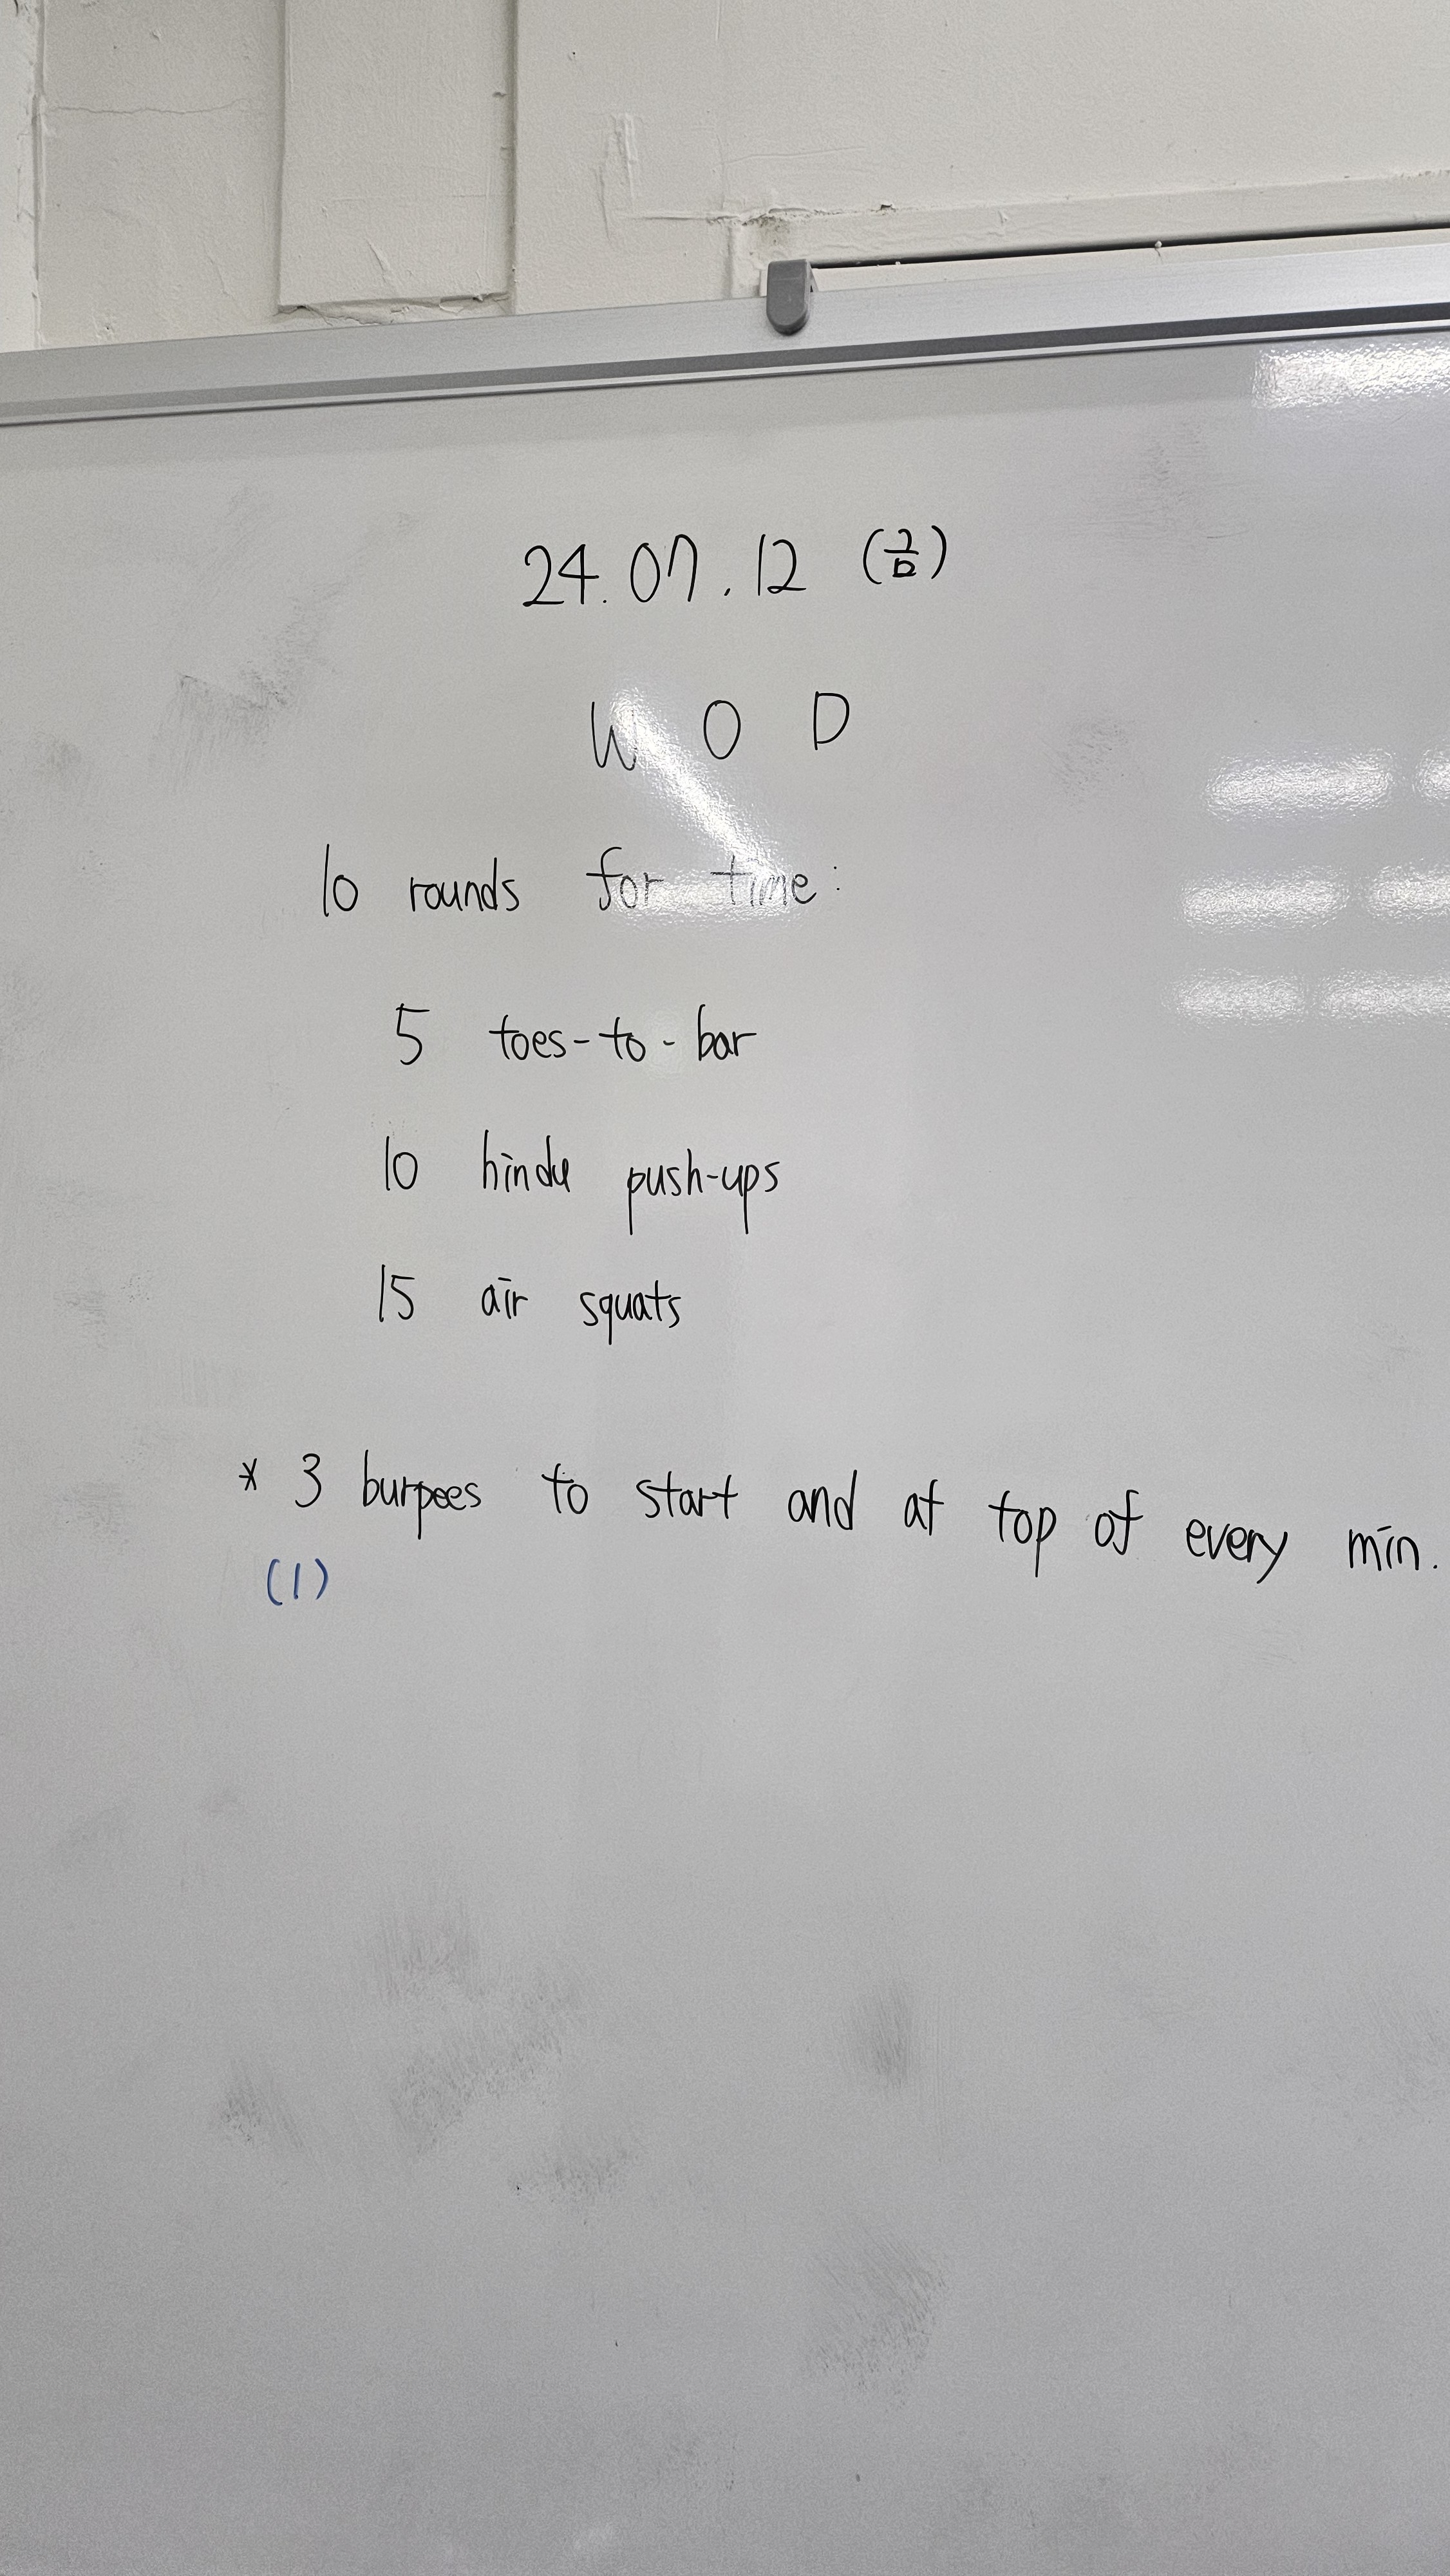 24.07.12 (금)
W O D
10 rounds for time:
5 toes-to-bar
10 hindu push-ups
15 air squats
* 3 burpees to start and at top of every min.
(1)